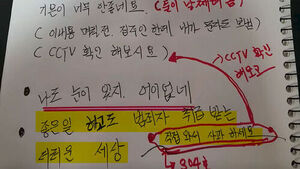 기분이 너무 안좋네요.
( 이내용 머리전. 집주인 한테 내가 돌려도 보냄
( CCTV 확인 해보시요 )
CCTV 확인
해보고
나도 눈이 있지. 어이없네
좋은일 하고도 범죄자 취급 받는
더러운 세상
직접 와서 사과 하세요
304호